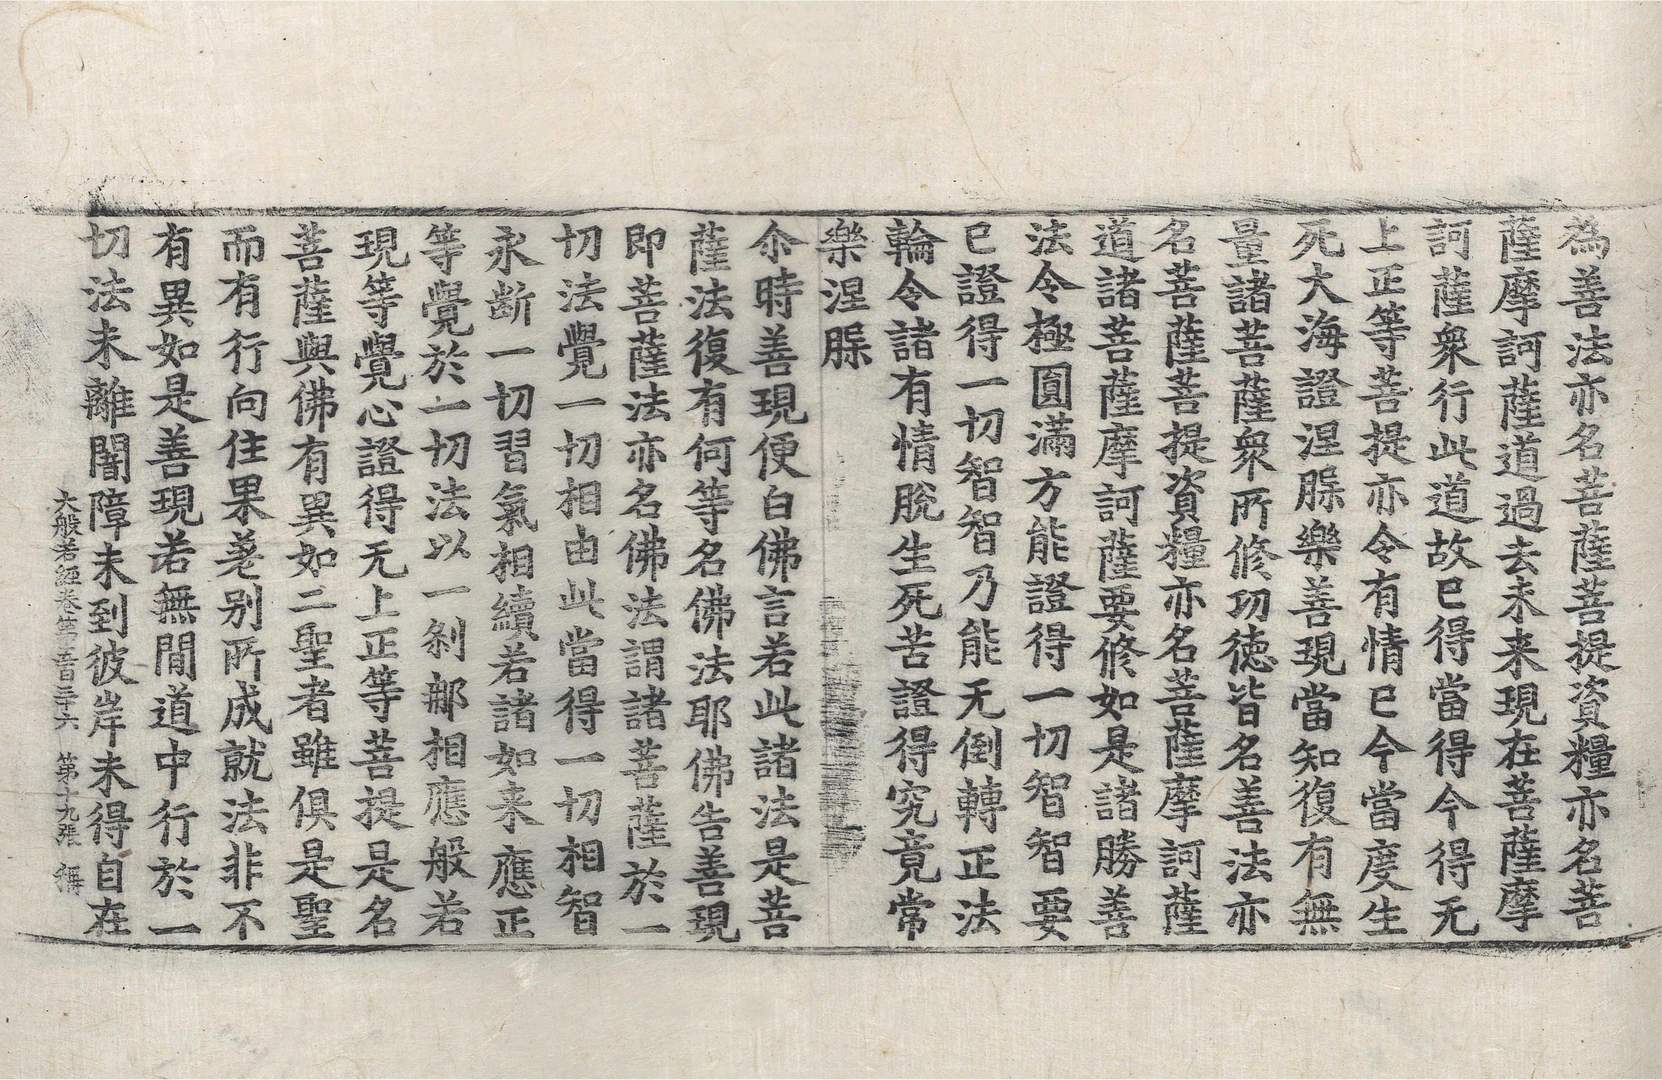 為善法亦名菩薩菩提資糧亦名菩
薩摩訶薩道過去未来現在菩薩摩
訶薩衆行此道故已得當得今得无
上正等菩提亦令有情已今當度生
死大海證涅槃樂善現當知復有無
量諸菩薩衆所修功徳皆名善法亦
名菩薩菩提資糧亦名菩薩摩訶薩
道諸菩薩摩訶薩要修如是諸勝善
法令極圓滿方能證得一切智智要
已證得一切智智乃能无倒轉正法
輪令諸有情脫生死苦證得究竟常
樂涅槃
尒時善現便白佛言若此諸法是菩
薩法復有何等名佛法耶佛告善現
即菩薩法亦名佛法謂諸菩薩於一
切法覺一切相由此當得一切相智
永断一切習氣相續若諸如来應正
等覺於一切法以一刹那相應般若
現等覺心證得无上正等菩提是名
菩薩與佛有異如二聖者雖俱是聖
而有行向住果差别所成就法非不
有異如是善現若無間道中行於一
切法未離闇障未到彼岸未得自在
大般若經卷第三百六十六 第十九張